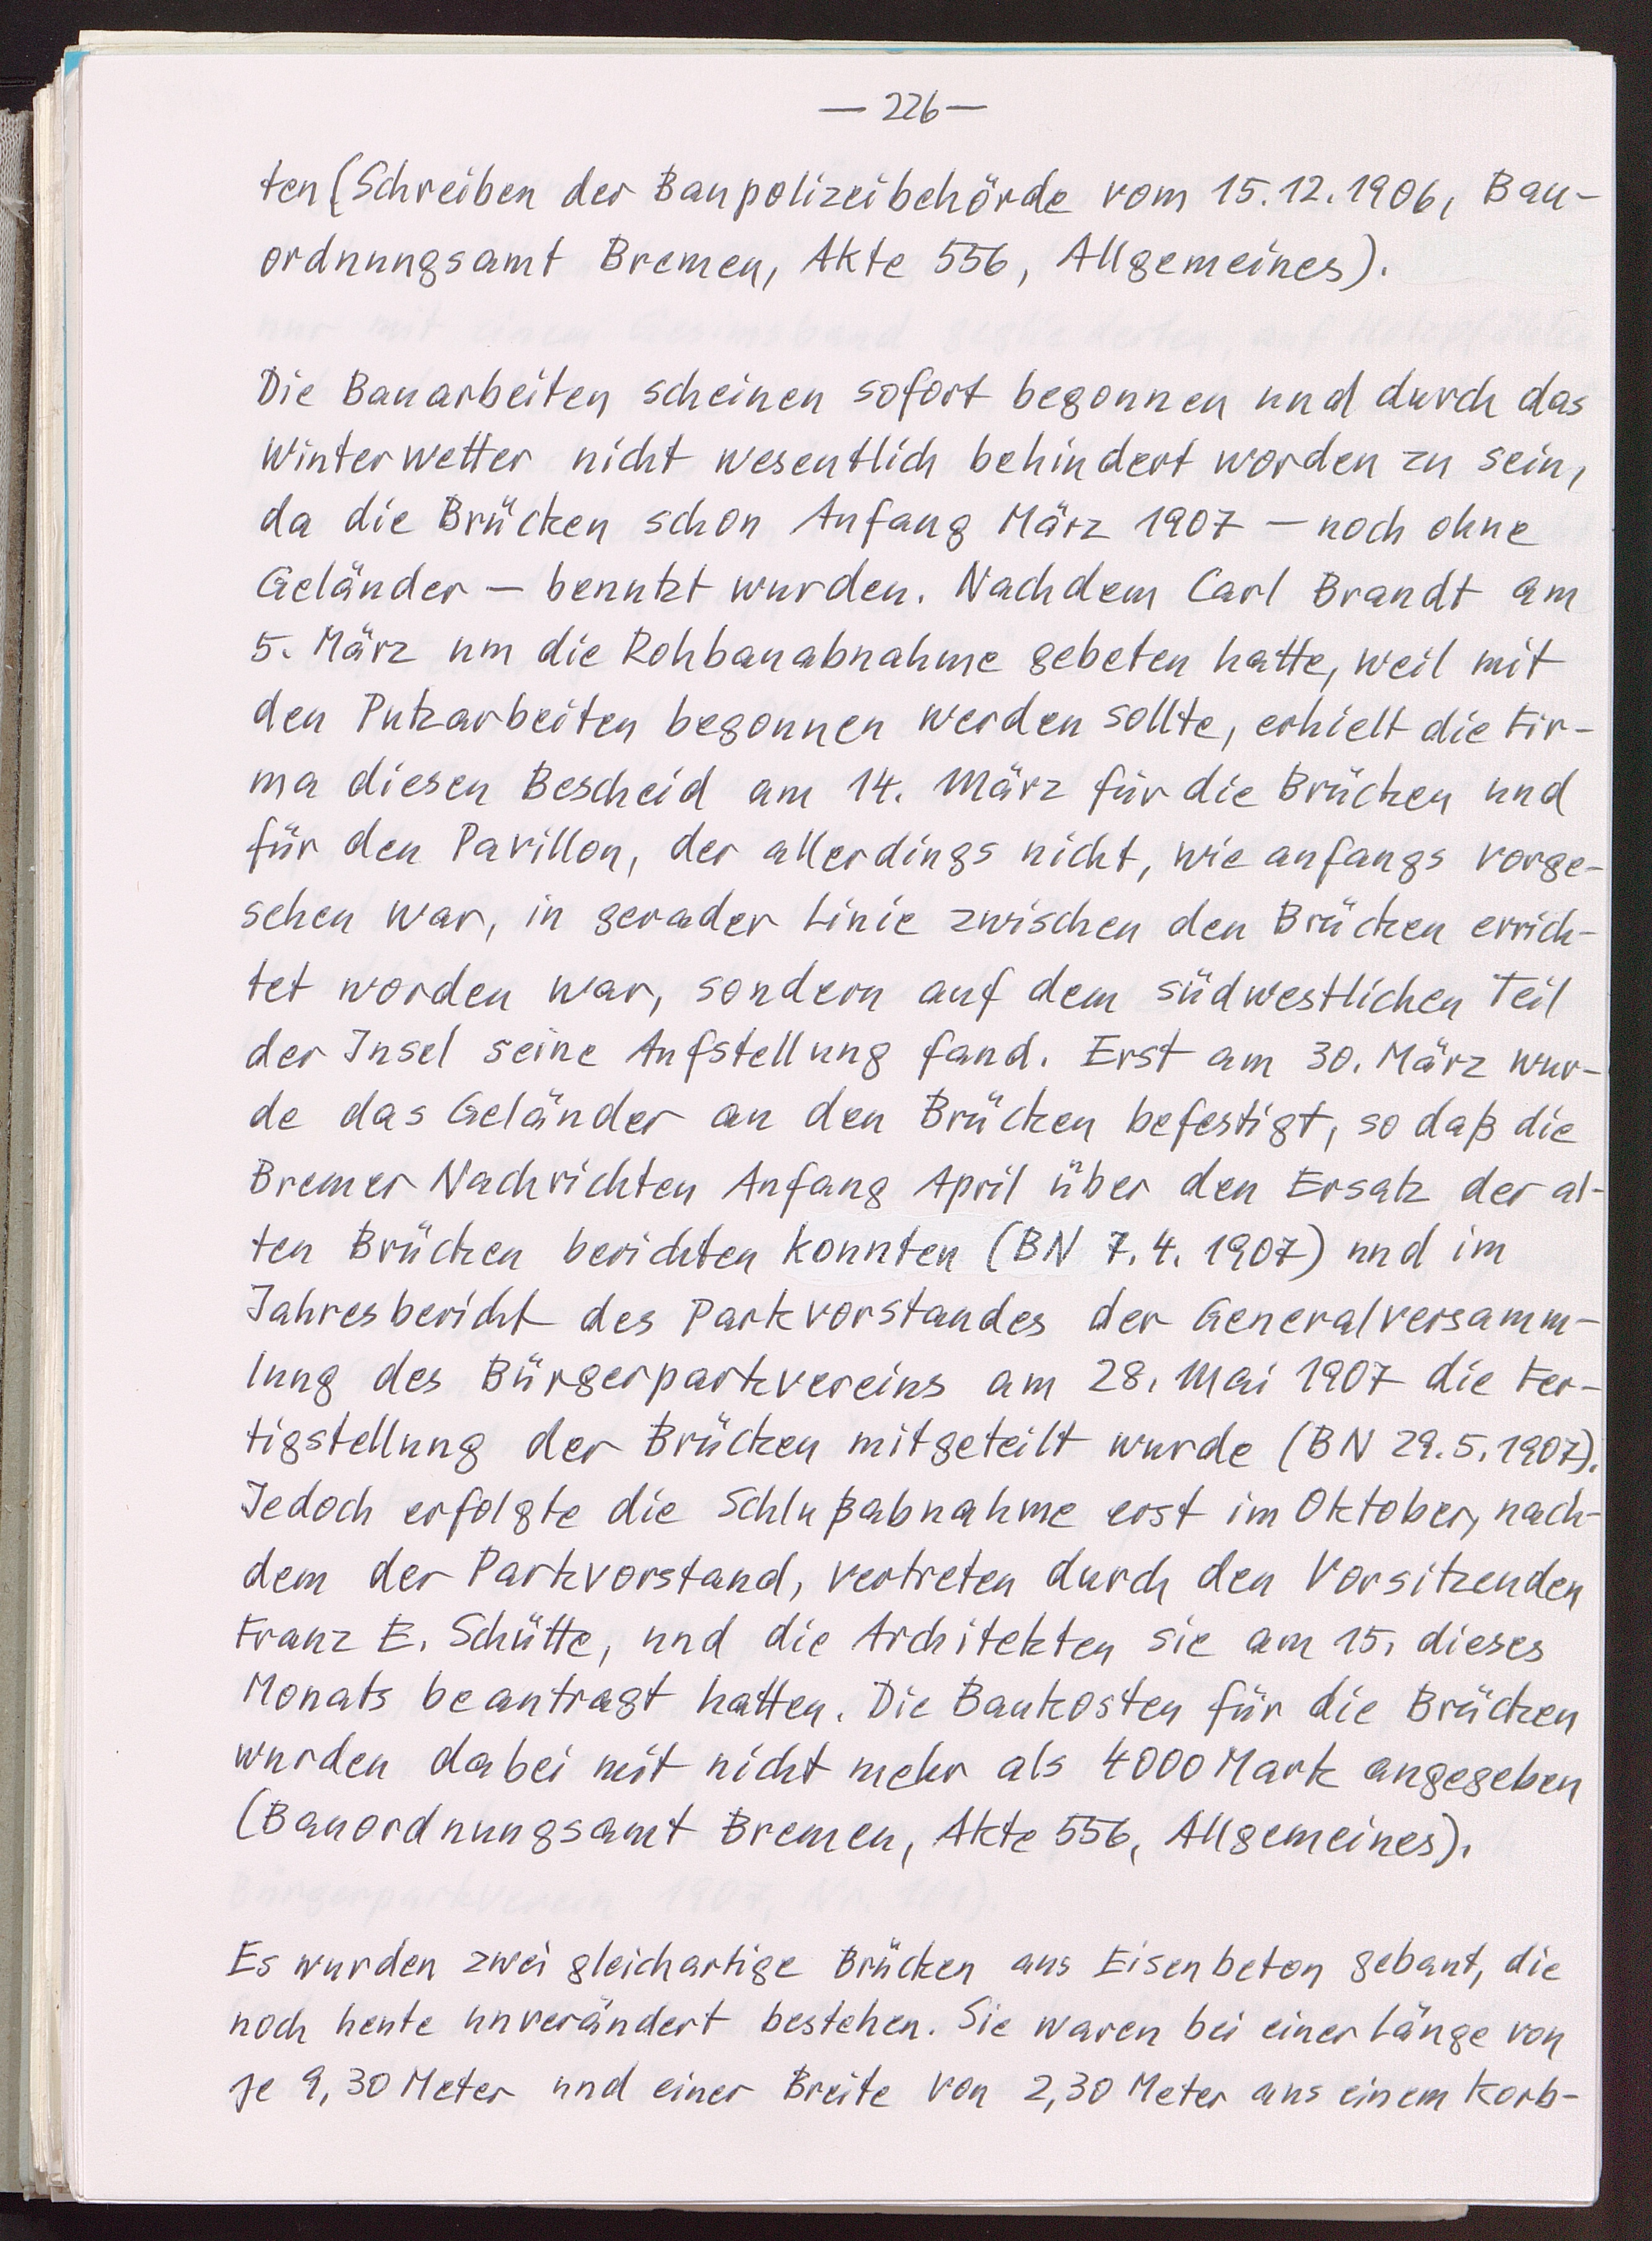 — 226 —
ten (Schreiben der Baupolizeibehörde vom 15.12.1906, Bau-
ordnungsamt Bremen, Akte 556, Allgemeines).
Die Bauarbeiten scheinen sofort begonnen und durch das
Winterwetter nicht wesentlich behindert worden zu sein,
da die Brücken schon Anfang März 1907 — noch ohne
Geländer — benutzt wurden. Nachdem Carl Brandt am
5. März um die Rohbauabnahme gebeten hatte, weil mit
den Putzarbeiten begonnen werden sollte, erhielt die Fir-
ma diesen Bescheid am 14. März für die Brücken und
für den Pavillon, der allerdings nicht, wie anfangs vorge-
sehen war, in gerader Linie zwischen den Brücken errich-
tet worden war, sondern auf dem südwestlichen Teil
der Insel seine Aufstellung fand. Erst am 30. März wur-
de das Geländer an den Brücken befestigt, so daß die
Bremer Nachrichten Anfang April über den Ersatz der al-
ten Brücken berichten konnten (BN 7.4.1907) und im
Jahresbericht des Parkvorstandes der Generalversamm-
lung des Bürgerparkvereins am 28. Mai 1907 die Fer-
tigstellung der Brücken mitgeteilt wurde (BN 29.5.1907).
Jedoch erfolgte die Schlußabnahme erst im Oktober, nach-
dem der Parkvorstand, vertreten durch den Vorsitzenden
Franz E. Schütte, und die Architekten sie am 15. dieses
Monats beantragt hatten. Die Baukosten für die Brücken
wurden dabei mit nicht mehr als 4000 Mark angegeben
(Bauordnungsamt Bremen, Akte 556, Allgemeines).
Es wurden zwei gleichartige Brücken aus Eisenbeton gebaut, die
noch heute unverändert bestehen. Sie waren bei einer Länge von
je 9,30 Meter und einer Breite von 2,30 Meter aus einem Korb-